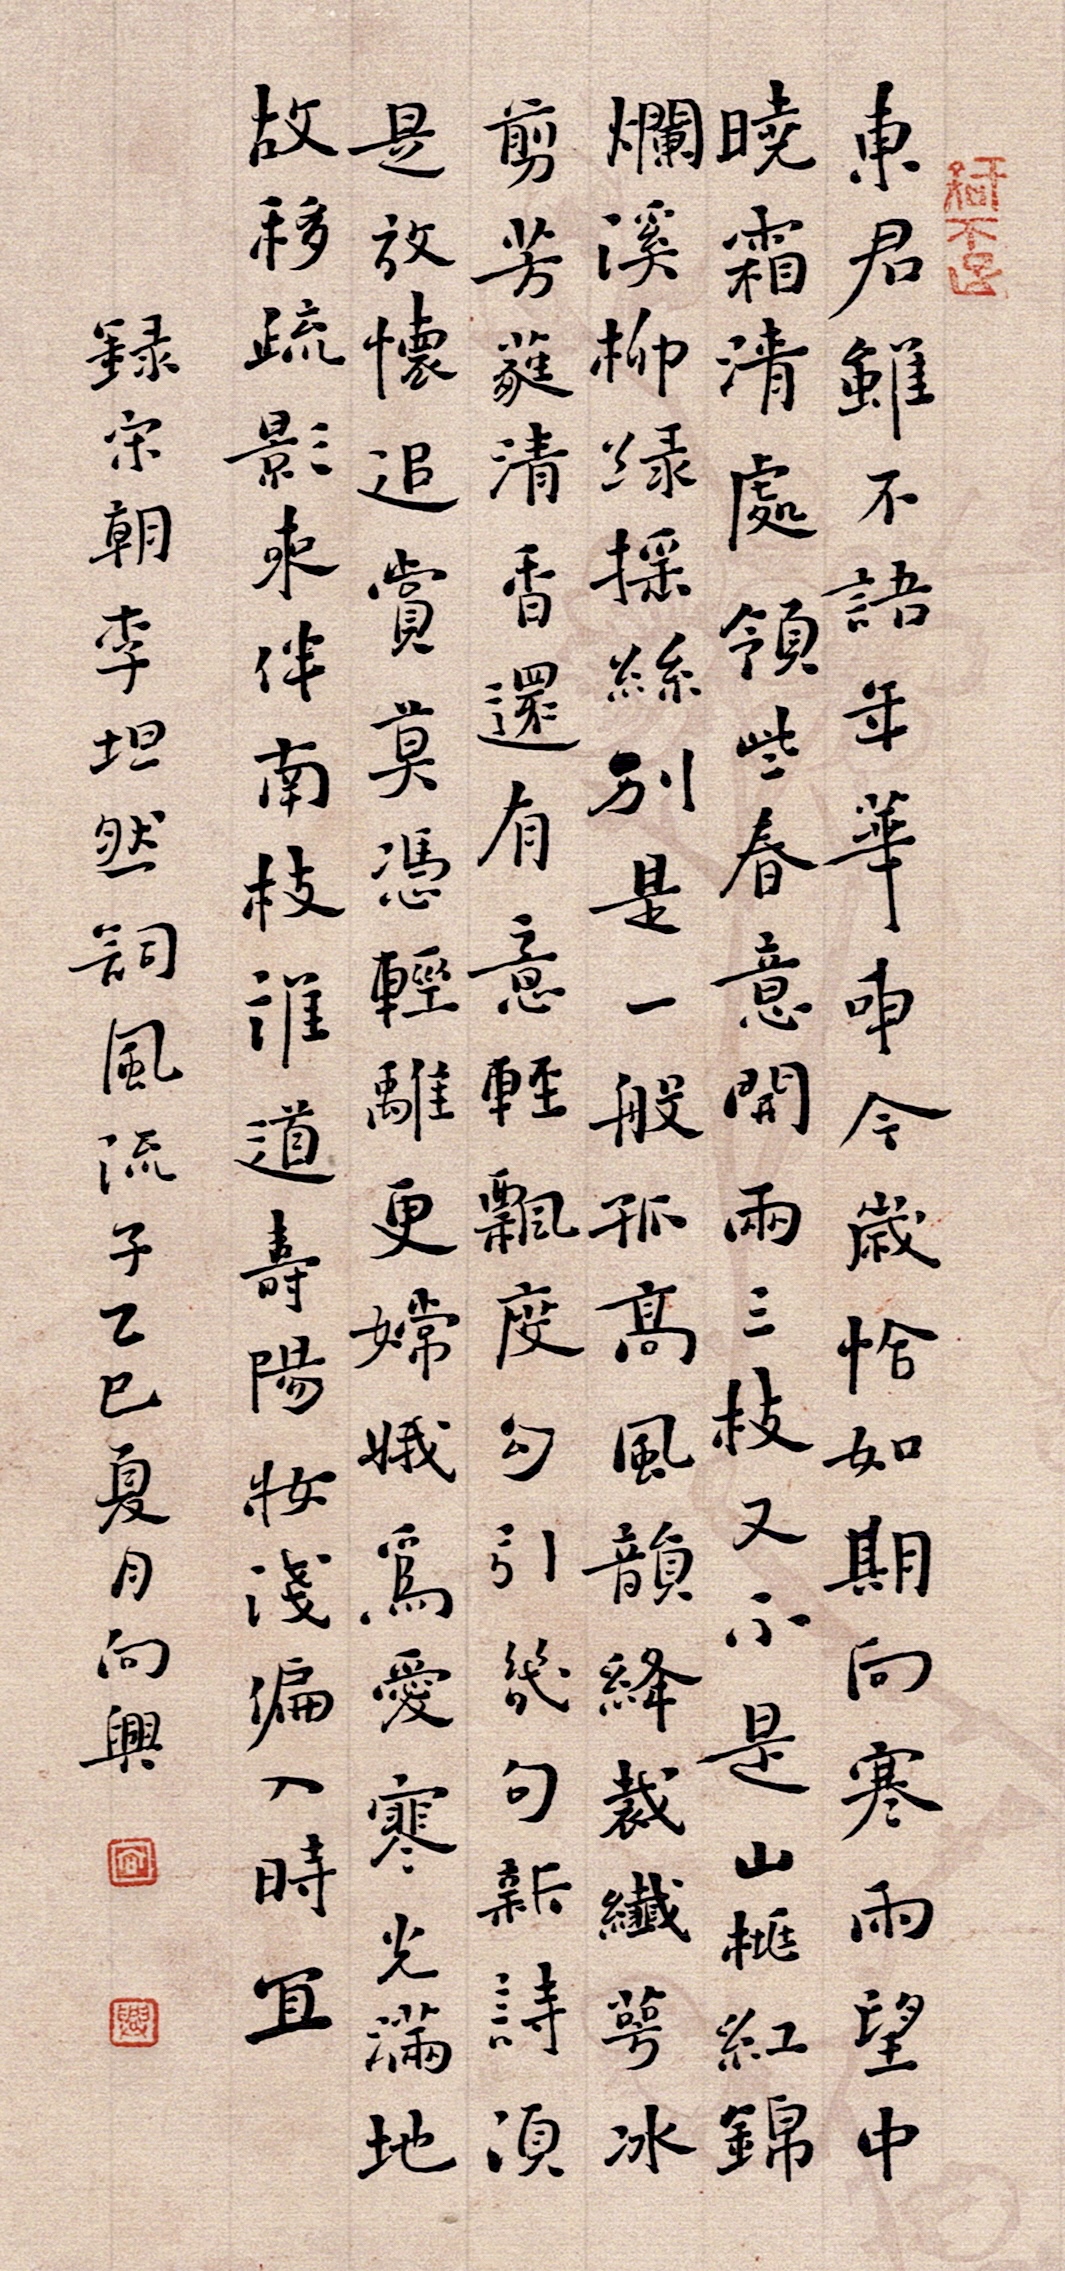 東君雖不語年華呻今歲恰如期向寒雨望中
曉霜清處領些春意開兩三枝又不是山桃紅錦
爛溪柳綠搖絲別是一般孤高風韻絳裁纖萼冰
剪芳蕤清香還有意輕飄度勾引幾句新詩須
是放懷追賞莫憑輕離更嫦娥爲愛寒光滿地
故移疏影來伴南枝誰道壽陽妝淺偏入時宜
錄宋朝李坦然詞風流子乙巳夏月向興